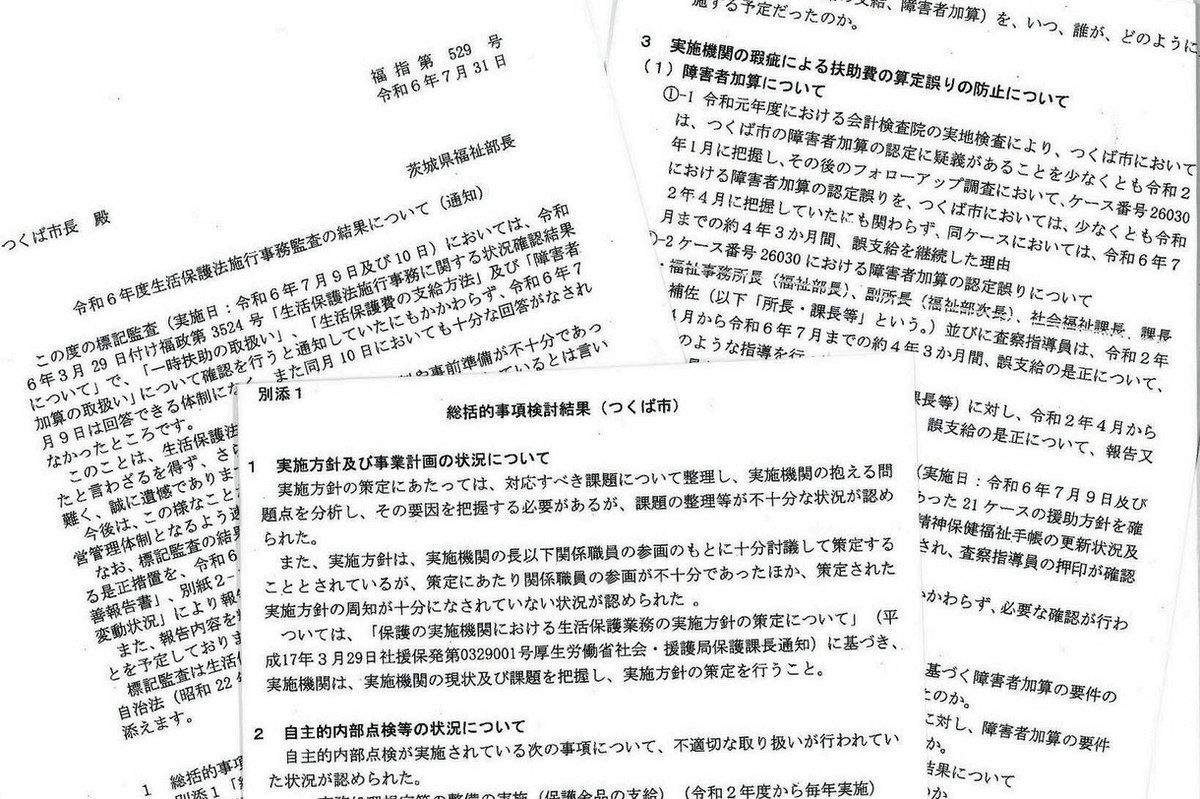 福指第 529 号
令和6年7月31日
茨城県福祉部長
つくば市長 殿
令和6年度生活保護法施行事務監査の結果について（通知）
この度の標記監査（実施日：令和6年7月9日及び10日）においては、令和
6年3月29日付け福政第3524号「生活保護法施行事務に関する状況確認結果
について」で、「一時扶助の取扱い」、「生活保護費の支給方法」及び「障害者
加算の取扱い」について確認を行うと通知していたにもかかわらず、令和6年7
月9日は回答できる体制になく、また同月10日においても十分な回答がなされ
なかったところです。
このことは、生活保護法
や事前準備が不十分であっ
たと言わざるを得ず、さら
ているとは言い
難く、誠に遺憾でありま
今後は、この様なことな
営管理体制となるよう速
なお、標記監査の結果
る是正措置を、令和6
善報告書」、別紙2-
変動状況」により報告
また、報告内容を
とを予定しておりま
標記監査は生活保
自治法（昭和22年
添えます。
1 総括的事項
別添1「総
別添1
総括的事項検討結果（つくば市）
1 実施方針及び事業計画の状況について
実施方針の策定にあたっては、対応すべき課題について整理し、実施機関の抱える問
題点を分析し、その要因を把握する必要があるが、課題の整理等が不十分な状況が認め
られた。
また、実施方針は、実施機関の長以下関係職員の参画のもとに十分討議して策定する
こととされているが、策定にあたり関係職員の参画が不十分であったほか、策定された
実施方針の周知が十分になされていない状況が認められた 。
ついては、「保護の実施機関における生活保護業務の実施方針の策定について」（平
成17年3月29日社援保発第0329001号厚生労働省社会・援護局保護課長通知）に基づき、
実施機関は、実施機関の現状及び課題を把握し、実施方針の策定を行うこと。
2 自主的内部点検等の状況について
自主的内部点検が実施されている次の事項について、不適切な取り扱いが行われてい
た状況が認められた。
事務処理規定等の整備の実施（保護金品の支給）（令和2年度から毎年実施）
の支給、障害者加算）を、いつ、誰が、どのように
施する予定だったのか。
3 実施機関の瑕疵による扶助費の算定誤りの防止について
（1）障害者加算について
①-1 令和元年度における会計検査院の実地検査により、つくば市において
は、つくば市の障害者加算の認定に疑義があることを少なくとも令和2
年1月に把握し、その後のフォローアップ調査において、ケース番号26030
における障害者加算の認定誤りを、つくば市においては、少なくとも令和
2年4月に把握していたにも関わらず、同ケースにおいては、令和6年7
月までの約4年3か月間、誤支給を継続した理由
①-2 ケース番号26030における障害者加算の認定誤りについて
・福祉事務所長（福祉部長）、副所長（福祉部次長）、社会福祉課長、課長
補佐（以下「所長・課長等」という。）並びに査察指導員は、令和2年
4月から令和6年7月までの約4年3か月間、誤支給の是正について、
のような指導を行
課長等）に対し、令和2年4月から
誤支給の是正について、報告又
（実施日：令和6年7月9日及び
あった21ケースの援助方針を確
精神保健福祉手帳の更新状況及
され、査察指導員の押印が確認
かわらず、必要な確認が行わ
基づく障害者加算の要件の
たのか。
に対し、障害者加算の要件
か。
結果について
のか